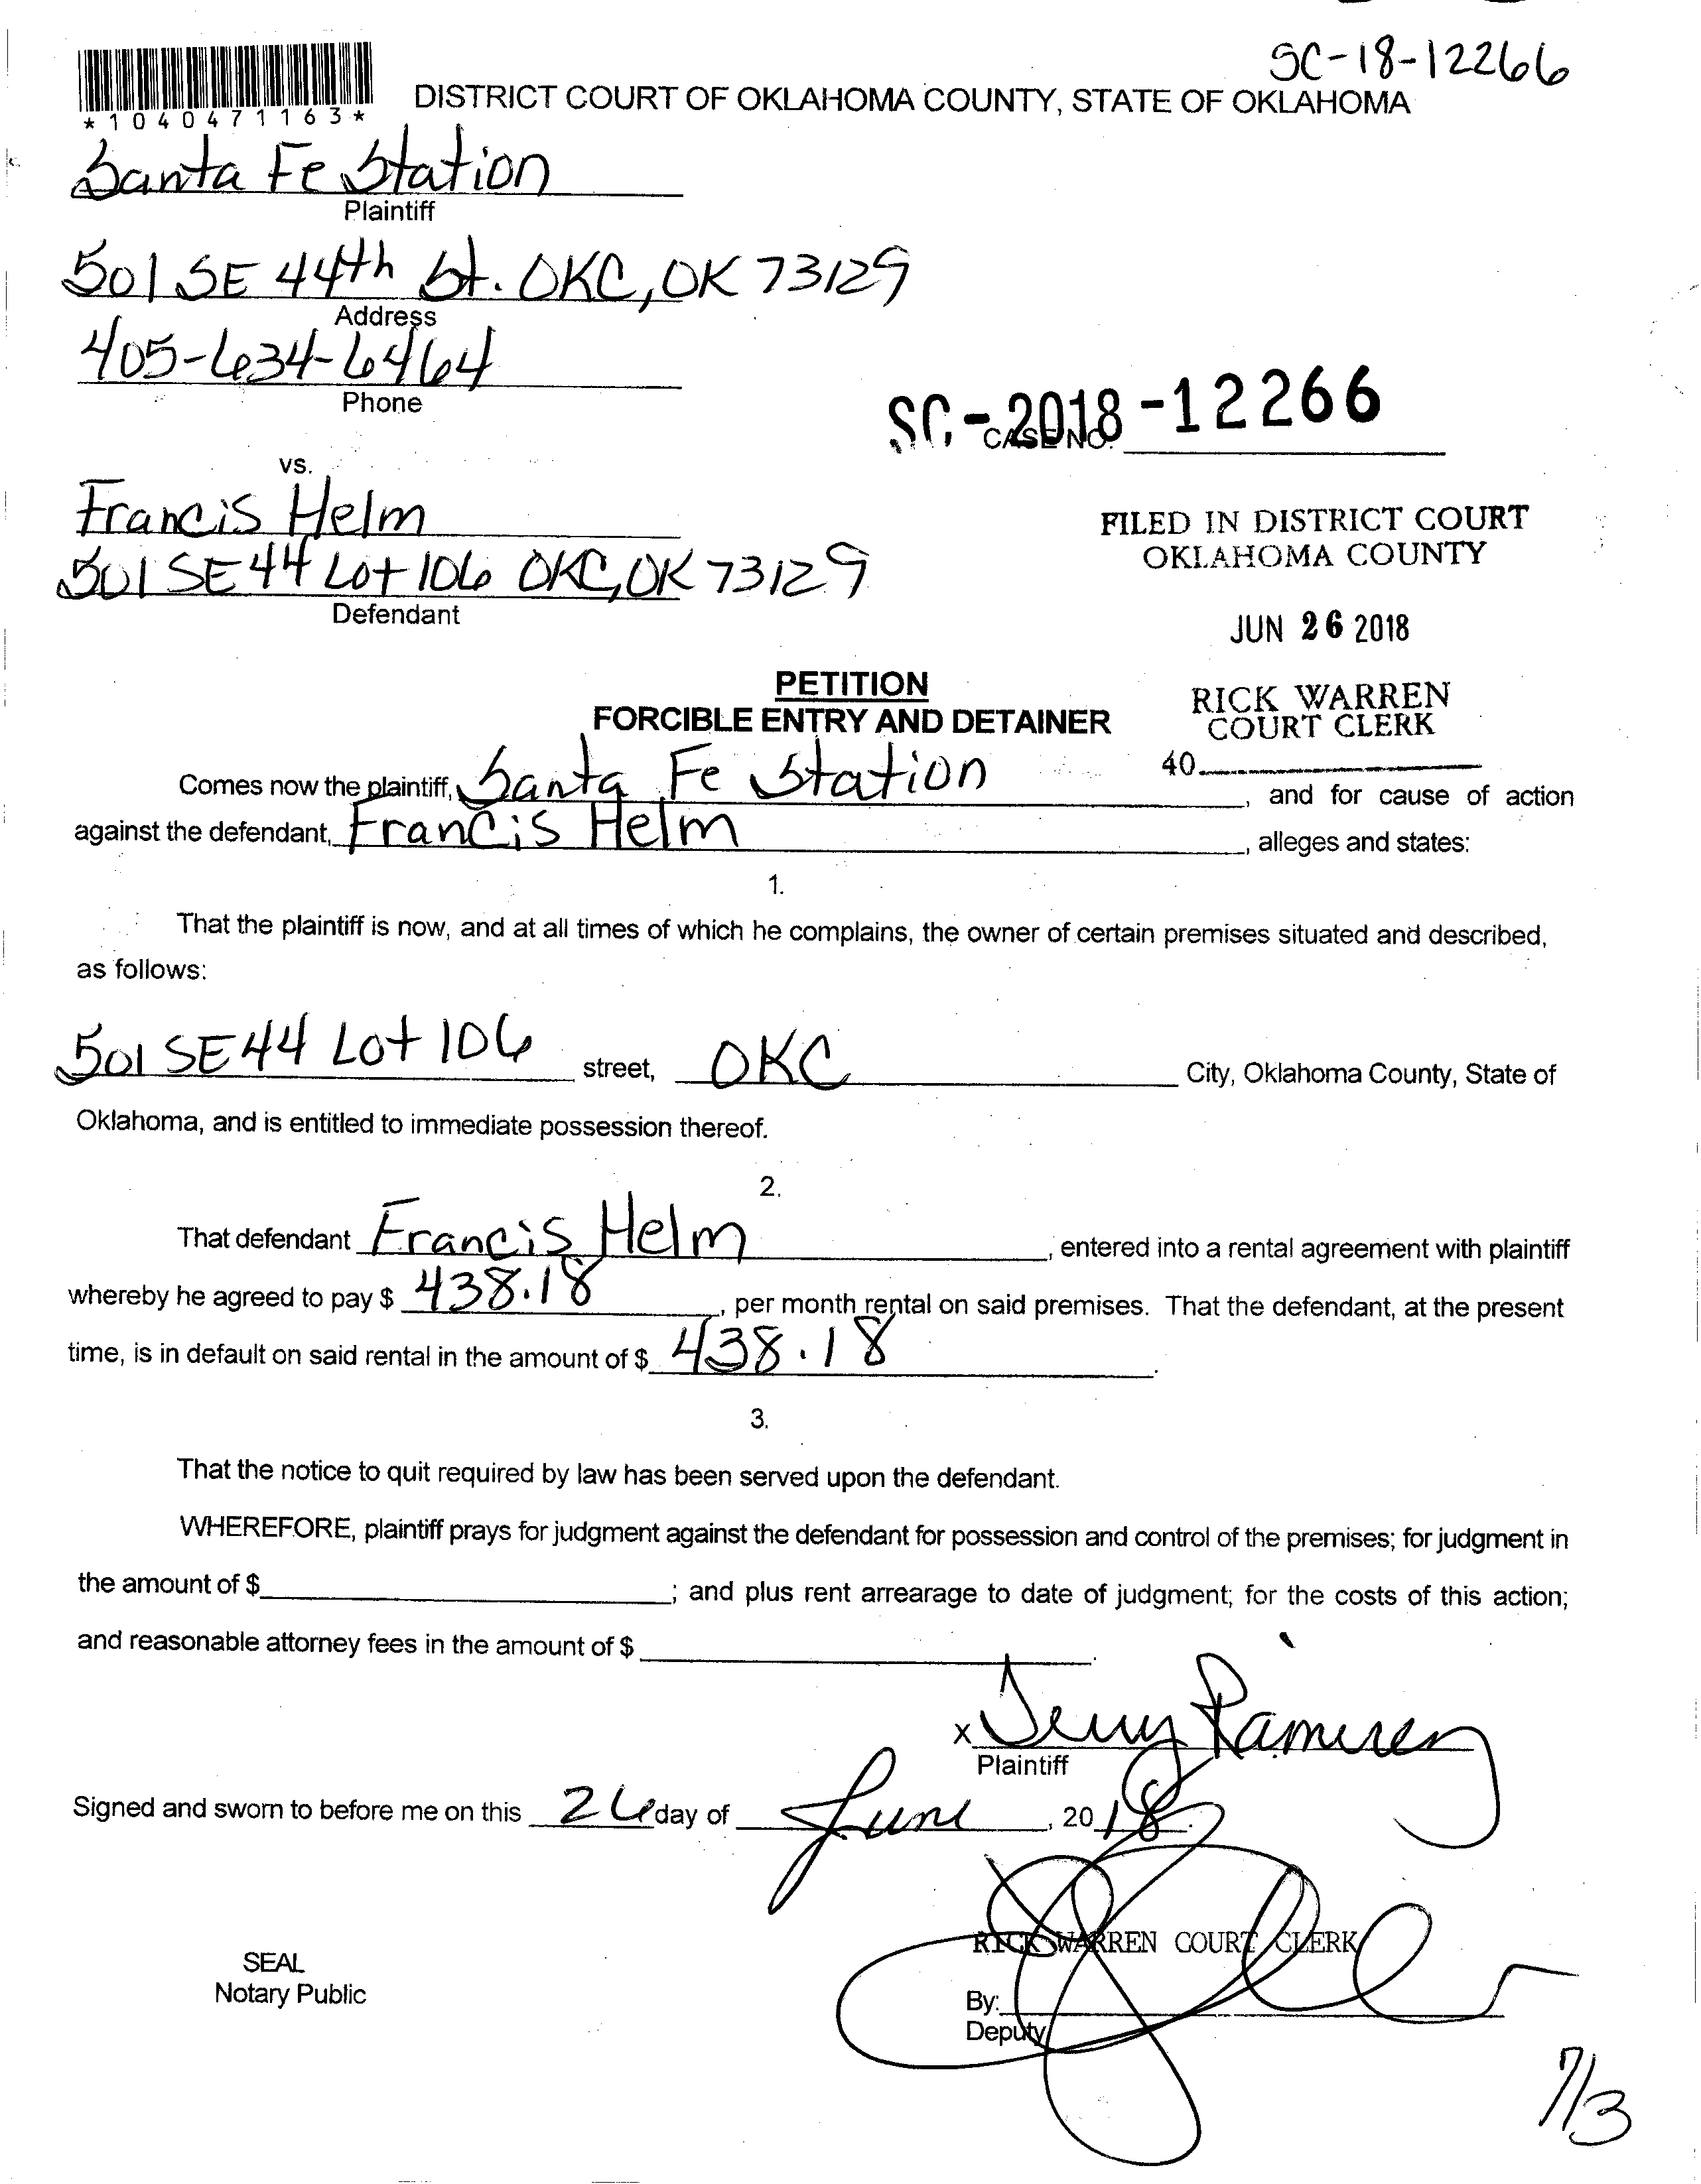 SC-18-12266
*1040471163*
DISTRICT COURT OF OKLAHOMA COUNTY, STATE OF OKLAHOMA
Santa Fe Station
Plaintiff
501 SE 44th St. OKC, OK 73129
Address
405-634-6464
Phone
SC-2018-12266
CASE NO.
vs.
Francis Helm
501 SE 44 Lot 106 OKC, OK 73129
Defendant
FILED IN DISTRICT COURT
OKLAHOMA COUNTY
JUN 26 2018
RICK WARREN
COURT CLERK
40
PETITION
FORCIBLE ENTRY AND DETAINER
Comes now the plaintiff, Santa Fe Station, and for cause of action
against the defendant, Francis Helm, alleges and states:
1.
That the plaintiff is now, and at all times of which he complains, the owner of certain premises situated and described,
as follows:
501 SE 44 Lot 106 street, OKC City, Oklahoma County, State of
Oklahoma, and is entitled to immediate possession thereof.
2.
That defendant Francis Helm, entered into a rental agreement with plaintiff
whereby he agreed to pay $ 438.18, per month rental on said premises. That the defendant, at the present
time, is in default on said rental in the amount of $ 438.18.
3.
That the notice to quit required by law has been served upon the defendant.
WHEREFORE, plaintiff prays for judgment against the defendant for possession and control of the premises; for judgment in
the amount of $ ; and plus rent arrearage to date of judgment; for the costs of this action;
and reasonable attorney fees in the amount of $ .
x Jerry Ramirez
Plaintiff
Signed and sworn to before me on this 26 day of June, 2018.
RICK WARREN COURT CLERK
SEAL
Notary Public
By:
Deputy
7/3